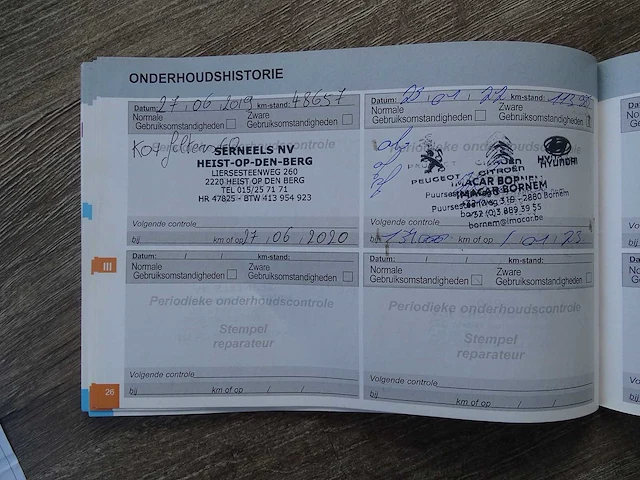 ONDERHOUDSHISTORIE
Datum: 27, 06, 2019 km-stand: 48657
Normale Gebruiksomstandigheden
Zware Gebruiksomstandigheden
SERNEELS NV
HEIST-OP-DEN-BERG
LIERSESTEENWEG 260
2220 HEIST OP DEN BERG
TEL 015/25 71 71
HR 47825 - BTW 413 954 923
Volgende controle
bij km of op 27, 06, 2020
Datum: 23, 01, 22 km-stand:
Normale Gebruiksomstandigheden
Zware Gebruiksomstandigheden
Periodieke onderhoudscontrole
PEUGEOT CITROËN HYUNDAI
IMACAR BORNEM
2880 Bornem
bornem@imacar.be
Volgende controle
bij km of op / 01, 23
Datum: / / km-stand:
Normale Gebruiksomstandigheden
Zware Gebruiksomstandigheden
Periodieke onderhoudscontrole
Stempel
reparateur
Volgende controle
bij km of op / /
Datum: / / km-stand:
Normale Gebruiksomstandigheden
Zware Gebruiksomstandigheden
Periodieke onderhoudscontrole
Stempel
reparateur
Volgende controle
bij km of op / /
III
26